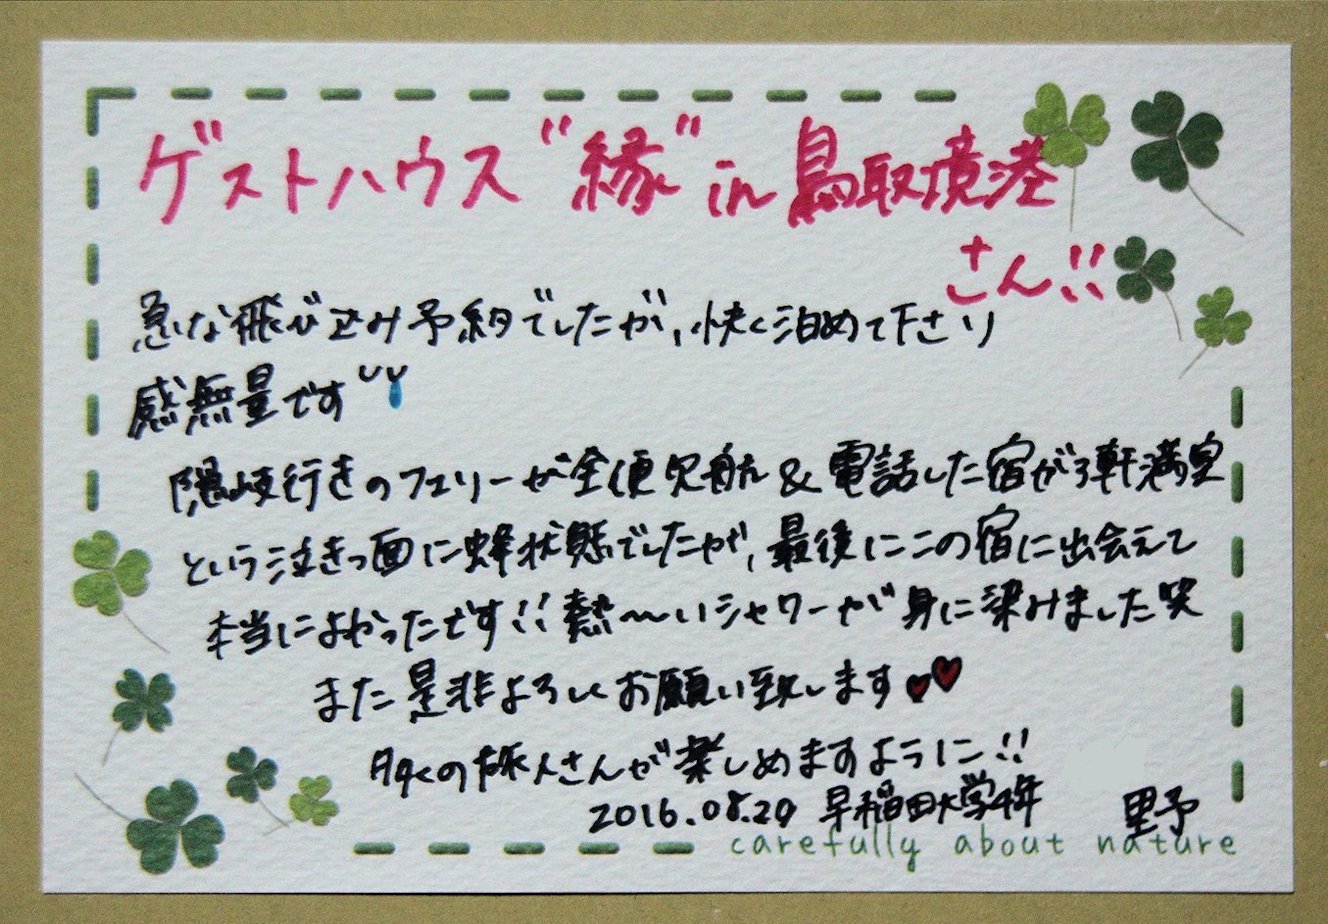 ゲストハウス"縁"in鳥取境港
さん!!
急な飛び込み予約でしたが、快く泊めて下さり
感無量です
隠岐行きのフェリーが全便欠航&電話した宿が3軒満室
という泣きっ面に蜂状態でしたが、最後にこの宿に出会えて
本当によかったです!!熱〜いシャワーが身に染みました笑
また是非よろしくお願い致します
多くの旅人さんが楽しめますように!!
2016.08.20 早稲田大学4年 野
carefully about nature